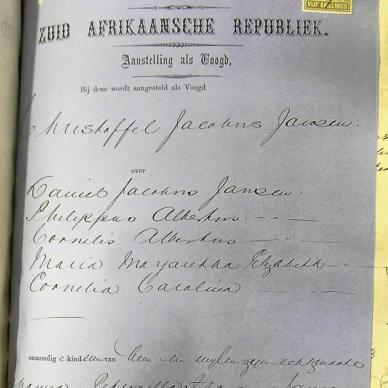 VIJF SHILLINGS
ZUID AFRIKAANSCHE REPUBLIEK.
Aanstelling als Voogd,
Bij deze wordt aangesteld als Voogd
Christoffel Jacobus Jansen.
over
Daniel Jacobus Jansen.
Philippus Albertus - " -
Cornelis Albertus - " -
Maria Margaretha Elizabeth - " -
Cornelia Carolina "
onmondig e kinderen van hem en wylen zyn echtgenoote